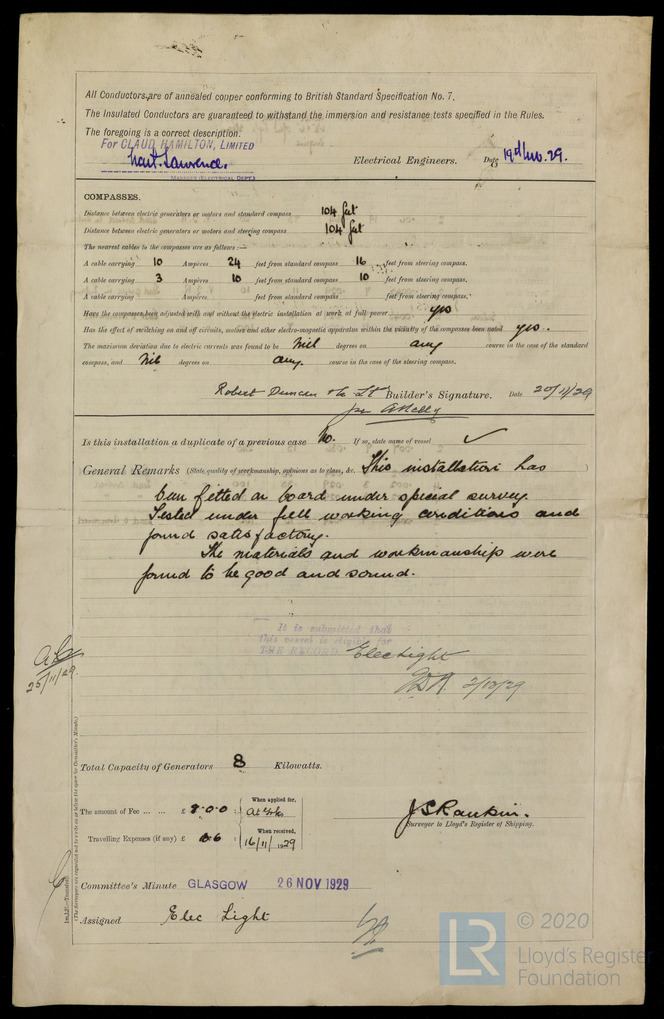 All Conductors are of annealed copper conforming to British Standard Specification No. 7.
The Insulated Conductors are guaranteed to withstand the immersion and resistance tests specified in the Rules.
The foregoing is a correct description.
For CLAUD HAMILTON, LIMITED
Lawrence. Electrical Engineers. Date 19th Nov. 29.
MANAGER (ELECTRICAL DEPT.)
COMPASSES.
Distance between electric generators or motors and standard compass 104 feet
Distance between electric generators or motors and steering compass 104 feet
The nearest cables to the compasses are as follows:—
A cable carrying 10 Ampères 24 feet from standard compass 16 feet from steering compass.
A cable carrying 3 Ampères 10 feet from standard compass 10 feet from steering compass.
A cable carrying Ampères feet from standard compass feet from steering compass.
Have the compasses been adjusted with and without the electric installation at work at full power yes
Has the effect of switching on and off circuits, motors and other electro-magnetic apparatus within the vicinity of the compasses been noted yes.
The maximum deviation due to electric currents was found to be Nil degrees on any course in the case of the standard
compass, and Nil degrees on any. course in the case of the steering compass.
Robert Duncan & Co Ld Builder's Signature. Date 20/11/29
for
Is this installation a duplicate of a previous case No. If so, state name of vessel ✓
General Remarks (State quality of workmanship, opinions as to class, &c. This installation has
been fitted on board under special survey.
Tested under full working conditions and
found satisfactory.
The materials and workmanship were
found to be good and sound.
It is submitted that
this vessel is eligible for
THE RECORD. Elec Light
2/12/29
25/11/29.
Total Capacity of Generators 8 Kilowatts.
The amount of Fee ... ... £ 8.0.0 When applied for,
Travelling Expenses (if any) £ When received,
16/11/1929
J S Rankin.
Surveyor to Lloyd's Register of Shipping.
Committee's Minute GLASGOW 26 NOV 1929
Assigned Elec Light
(The Surveyors are requested not to write on or below the space for Committee's Minute.)
© 2020
LR
Lloyd's Register
Foundation